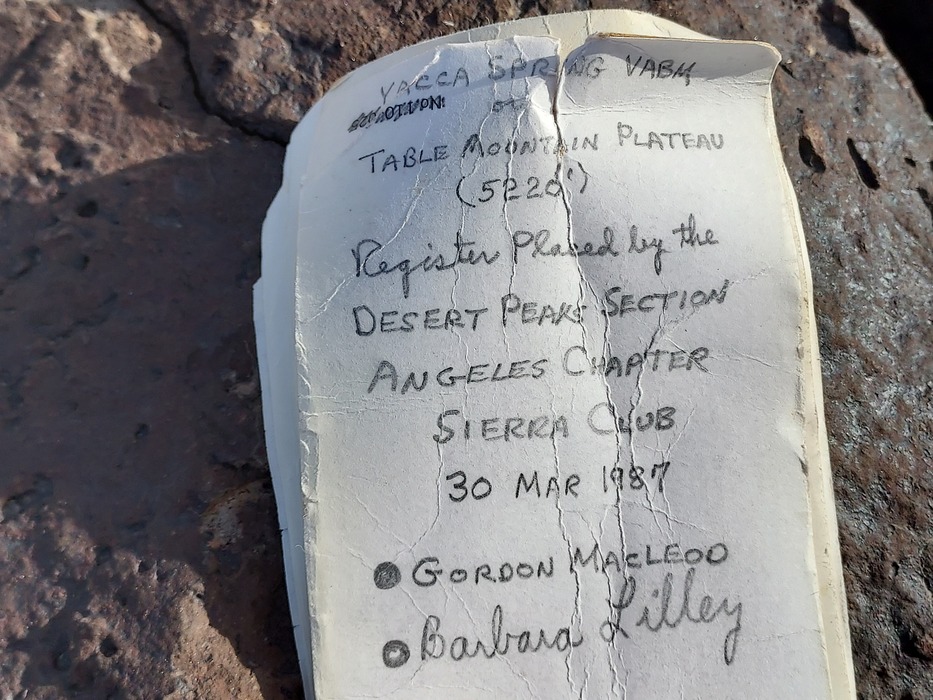 YACCA SPRING VABM
on
TABLE MOUNTAIN PLATEAU
(5220')
Register Placed by the
DESERT PEAKS SECTION
ANGELES CHAPTER
SIERRA CLUB
30 MAR 1987
GORDON MACLEOD
Barbara Lilley